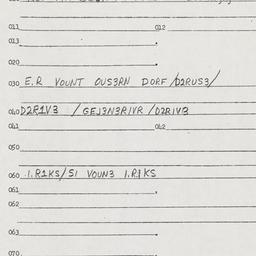 011 012
013
020
030 E.R VOUNT OUS3RN DORF /D2RUS3/
040 D2R1V3 /GEJ3N3RIVR /D2RIV3
041 042
050
060 .I.R1KS/SI VOUN3 I.R1KS
061
062
063
070